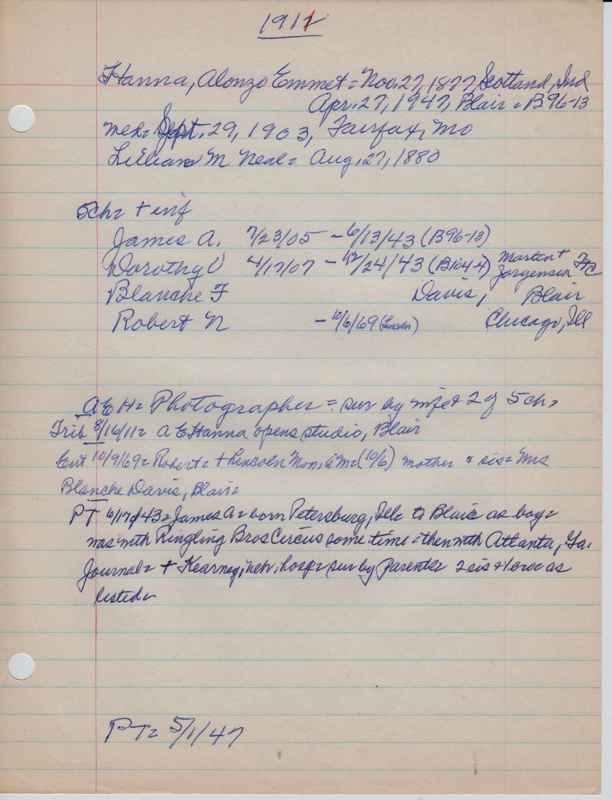 1911
Hanna, Alonzo Emmet = Nov. 27, 1877, Scotland, Ind
Apr. 27, 1947, Blair = B96-13
Med = Sept. 29, 1903, Fairfax, Mo
Lillian M Neal = Aug, 27, 1880
5ch = + inf
James A. 7/23/05 - 6/13/43 (B96-13)
Dorothy V 4/17/07 - 12/24/43 (B104-4) Marten + Jorgensen
Blanche F Davis, Blair
Robert N - 10/6/69 (Lincoln) Chicago, Ill
A E H = Photographer = sur by wife & 2 of 5 ch,
Trib 8/16/11 = A E Hanna opens studio, Blair
Ent 10/9/69 = Robert = + Lincoln Mon, (10/6) mother & sis = Mrs
Blanche Davis, Blair =
PT 6/17/43 = James A = born Petersburg, Ill = to Blair as boy =
was with Ringling Bros Circus some time = then with Atlanta, Ga.
Journal = + Kearney, Neb. hosp = sur by Parents 2 sis & 1 bro as
listed =
PT = 5/1/47